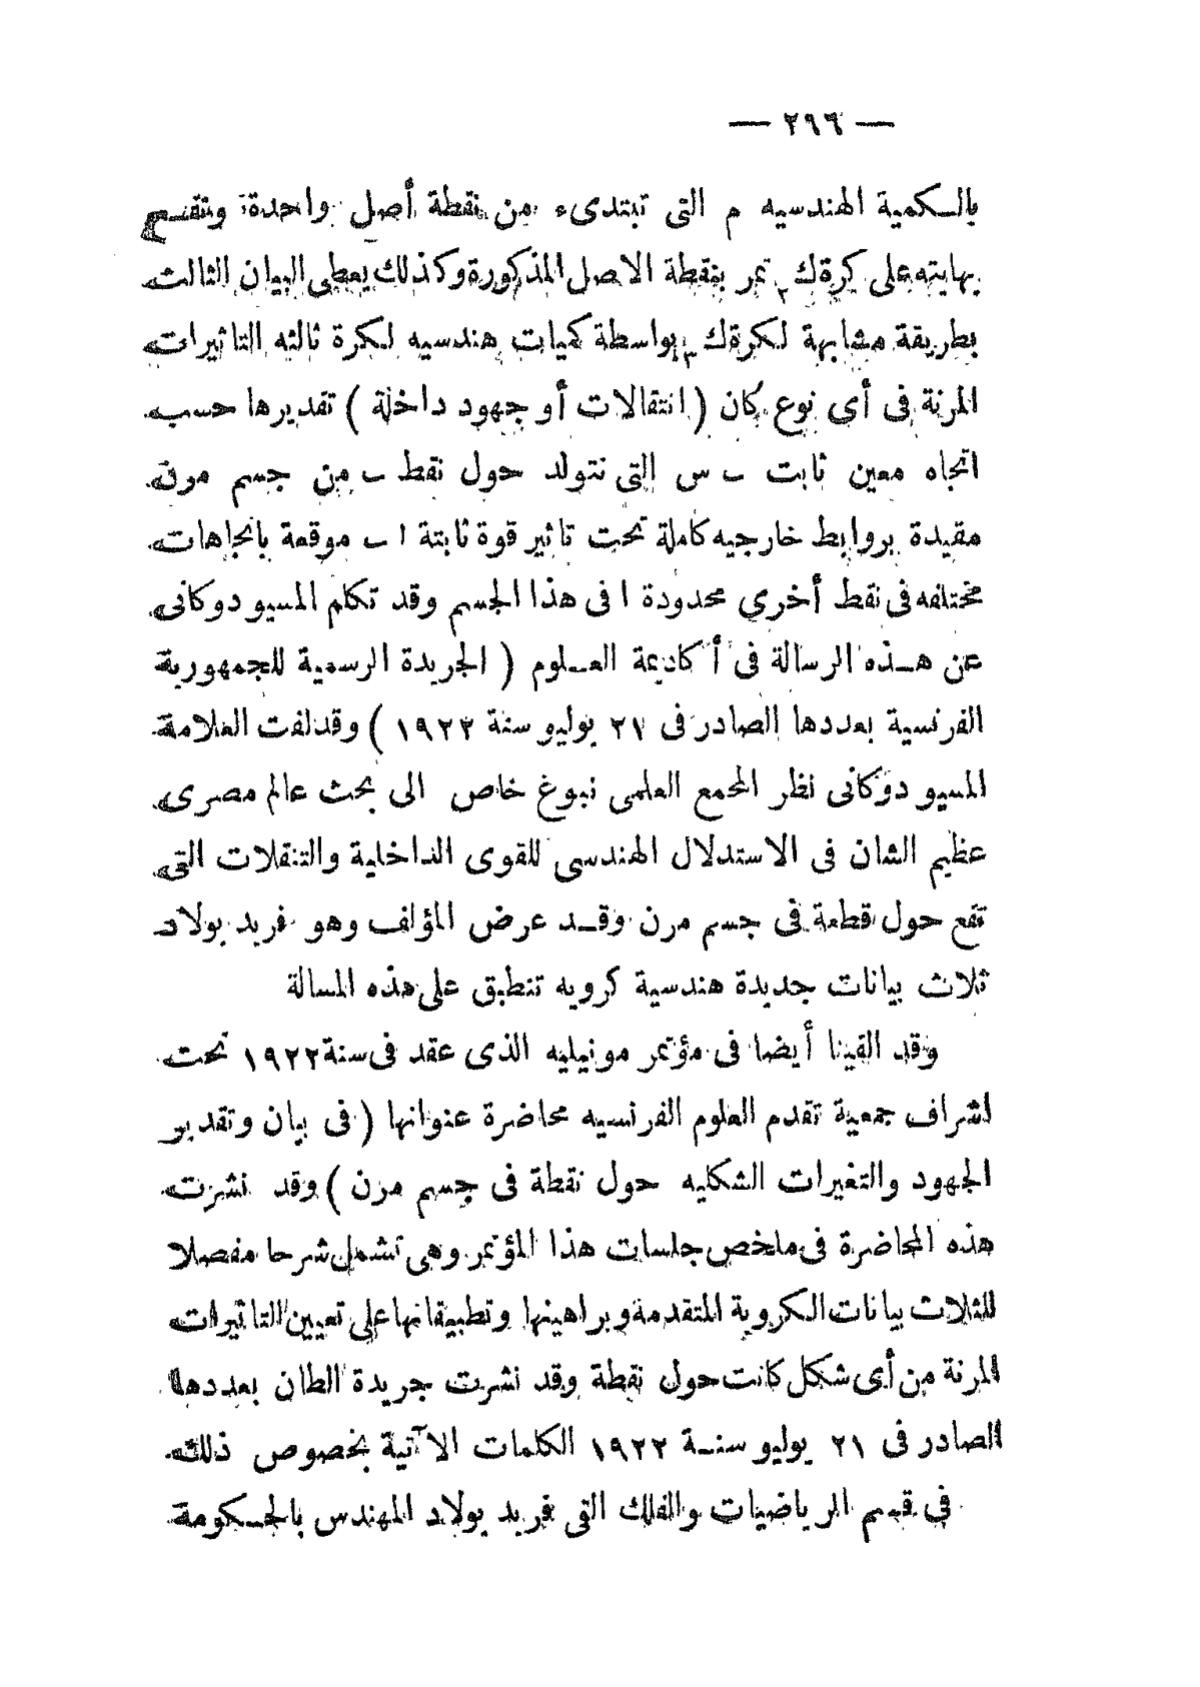 — ٢٩٦ —
بالكمية الهندسيه م التى تبتدىء من نقطة أصل واحدة وتقسم
نهايته على كرة ك٢ تمر بنقطة الاصل المذكورة وكذلك يعطى البيان الثالث
بطريقة مشابهة لكرة ك٣ بواسطة كميات هندسيه لكرة ثالثه التاثيرات
المرنة فى أى نوع كان ( انتقالات أو جهود داخلة ) تقديرها حسب
اتجاه معين ثابت ب س التى تتولد حول نقط ب من جسم مرن
مقيدة بروابط خارجيه كاملة تحت تاثير قوة ثابتة ا ب موقعة باتجاهات
مختلفه فى نقط أخري محدودة ا فى هذا الجسم وقد تكلم المسيو دوكانى
عن هذه الرسالة فى أكاديمة العلوم ( الجريدة الرسمية للجمهورية
الفرنسية بعددها الصادر فى ٢٧ يوليو سنة ١٩٢٢ ) وقد لفت العلامة
المسيو دوكانى نظر المجمع العلمى نبوغ خاص الى بحث عالم مصرى
عظيم الشان فى الاستدلال الهندسى للقوى الداخلية والتنقلات التى
تقع حول قطعة فى جسم مرن وقد عرض المؤلف وهو فريد بولاد
ثلاث بيانات جديدة هندسية كرويه تنطبق على هذه المسالة
وقد القينا أيضا فى مؤتمر مونبليه الذى عقد فى سنة ١٩٢٢ تحت
اشراف جمعية تقدم العلوم الفرنسيه محاضرة عنوانها ( فى بيان وتقدير
الجهود والتغيرات الشكليه حول نقطة فى جسم مرن ) وقد نشرت
هذه المحاضرة فى ملخص جلسات هذا المؤتمر وهى تشمل شرحا مفصلا
للثلاث بيانات الكروية المتقدمة وبراهينها وتطبيقاتها على تعيين التاثيرات
المرنة من أى شكل كانت حول نقطة وقد نشرت جريدة الطان بعددها
الصادر فى ٢١ يوليو سنة ١٩٢٢ الكلمات الآتية بخصوص ذلك
فى قسم الرياضيات والفلك التى فريد بولاد المهندس بالحكومة